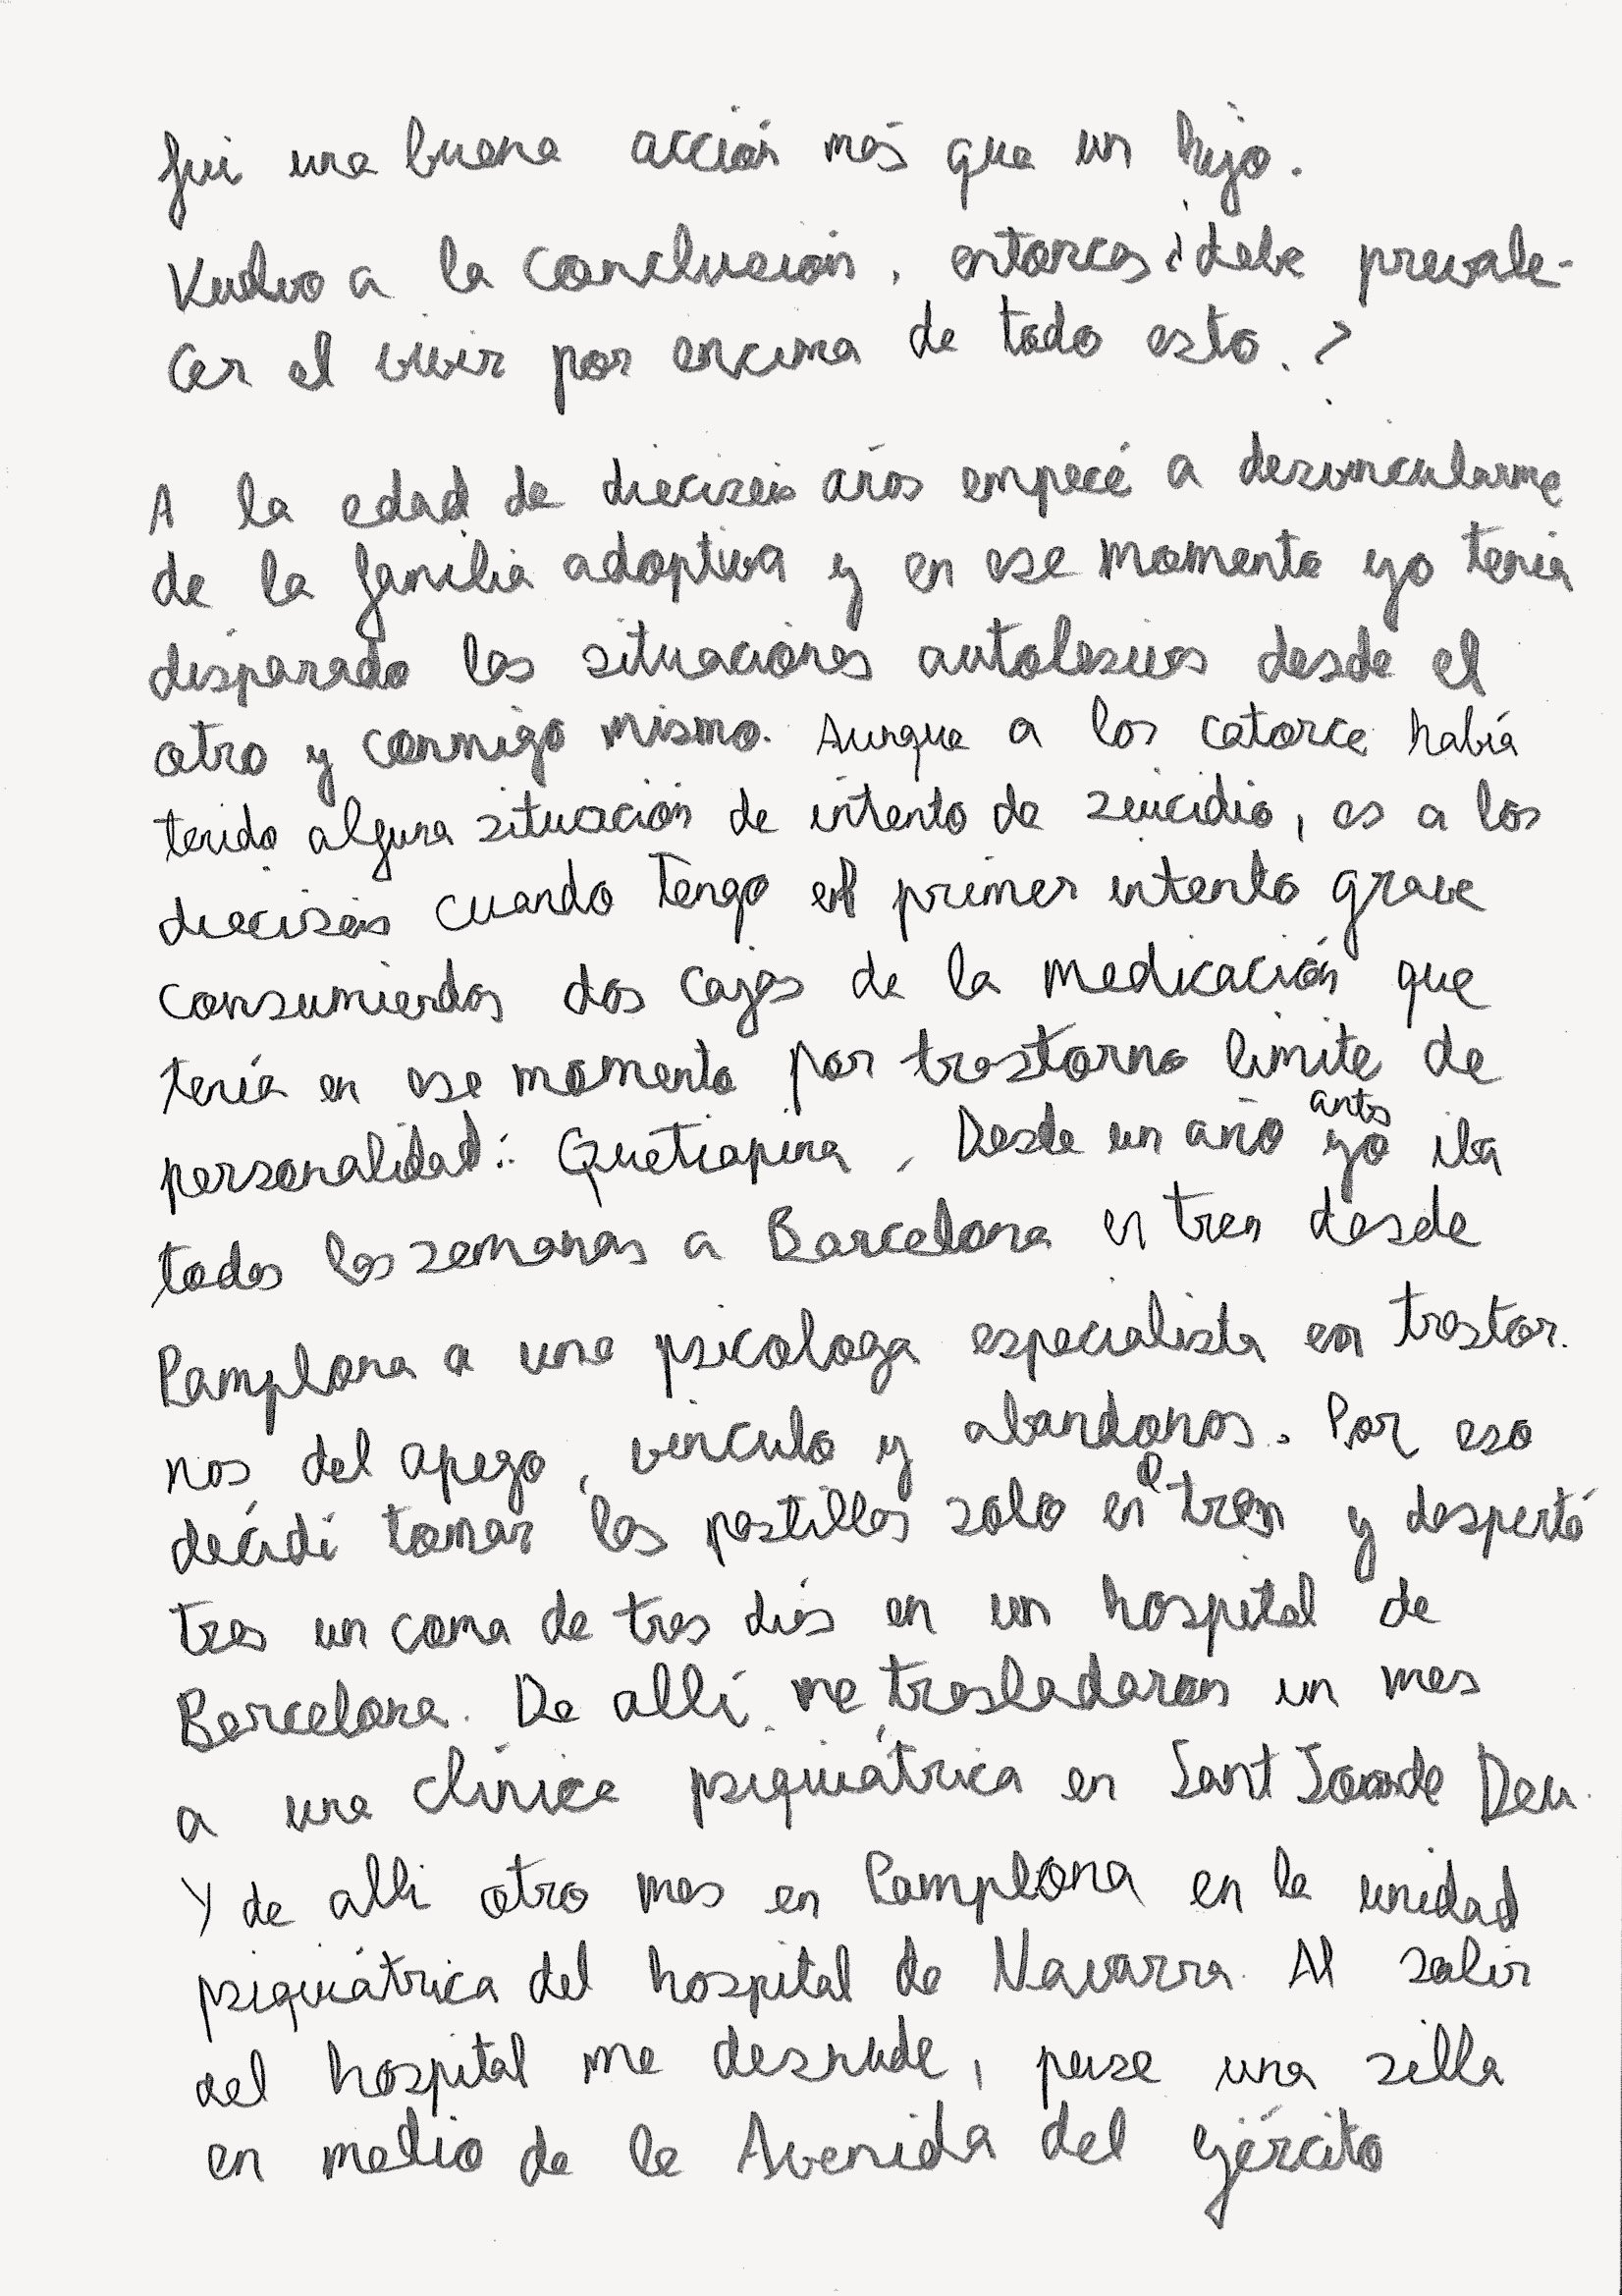 fui una buena acción más que un hijo.
Vuelvo a la conclusión, entonces ¿debe prevale-
cer el vivir por encima de todo esto.?
A la edad de dieciseis años empecé a desvincularme
de la familia adoptiva y en ese momento yo tenía
disparado las situaciones autolesivas desde el
otro y conmigo mismo. Aunque a los catorce había
tenido alguna situación de intento de suicidio, es a los
dieciseis cuando tengo el primer intento grave
consumiendos dos cajas de la medicación que
tenía en ese momento por trastorno límite de
personalidad: Quetiapina. Desde un año antes yo iba
todas las semanas a Barcelona en tren desde
Pamplona a una psicologa especialista en trastor.
nos del apego, vinculo y abandonos. Por eso
decidí tomar las pastillas solo en el tren y desperté
tras un coma de tres días en un hospital de
Barcelona. De allí me trasladaron un mes
a una clínica psiquiátrica en Sant Joan de Deu.
Y de alli otro mes en Pamplona en la unidad
psiquiátrica del hospital de Navarra. Al salir
del hospital me desnude, puse una silla
en medio de la Avenida del ejército